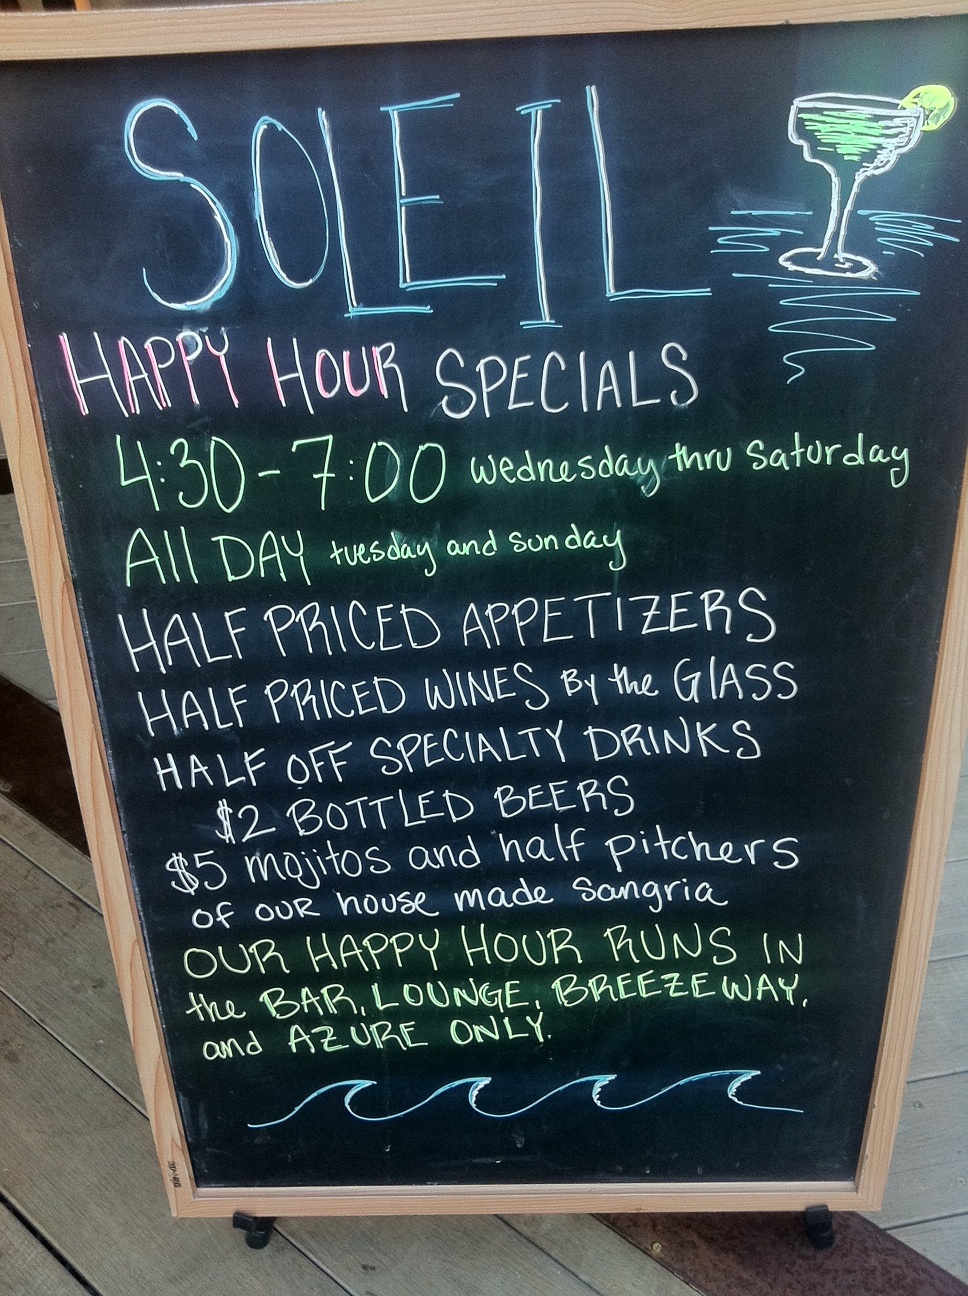 SOLEIL
HAPPY HOUR SPECIALS
4:30-7:00 wednesday thru Saturday
All DAY tuesday and sunday
HALF PRICED APPETIZERS
HALF PRICED WINES By the GlASS
HALF OFF SPECIALTY DRINKS
$2 BOTTLED BEERS
$5 mojitos and half pitchers
of our house made Sangria
OUR HAPPY HOUR RUNS IN
the BAR, LOUNGE, BREEZEWAY,
and AZURE ONLY.